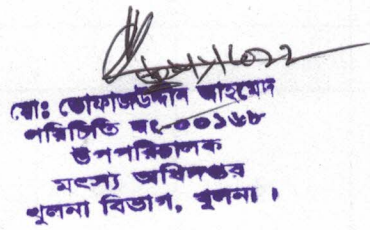 মো: তোফাজউদ্দীন আহমেদ
পরিচিতি নং-০০১৬৮
উপপরিচালক
মৎস্য অধিদপ্তর
খুলনা বিভাগ, খুলনা ।